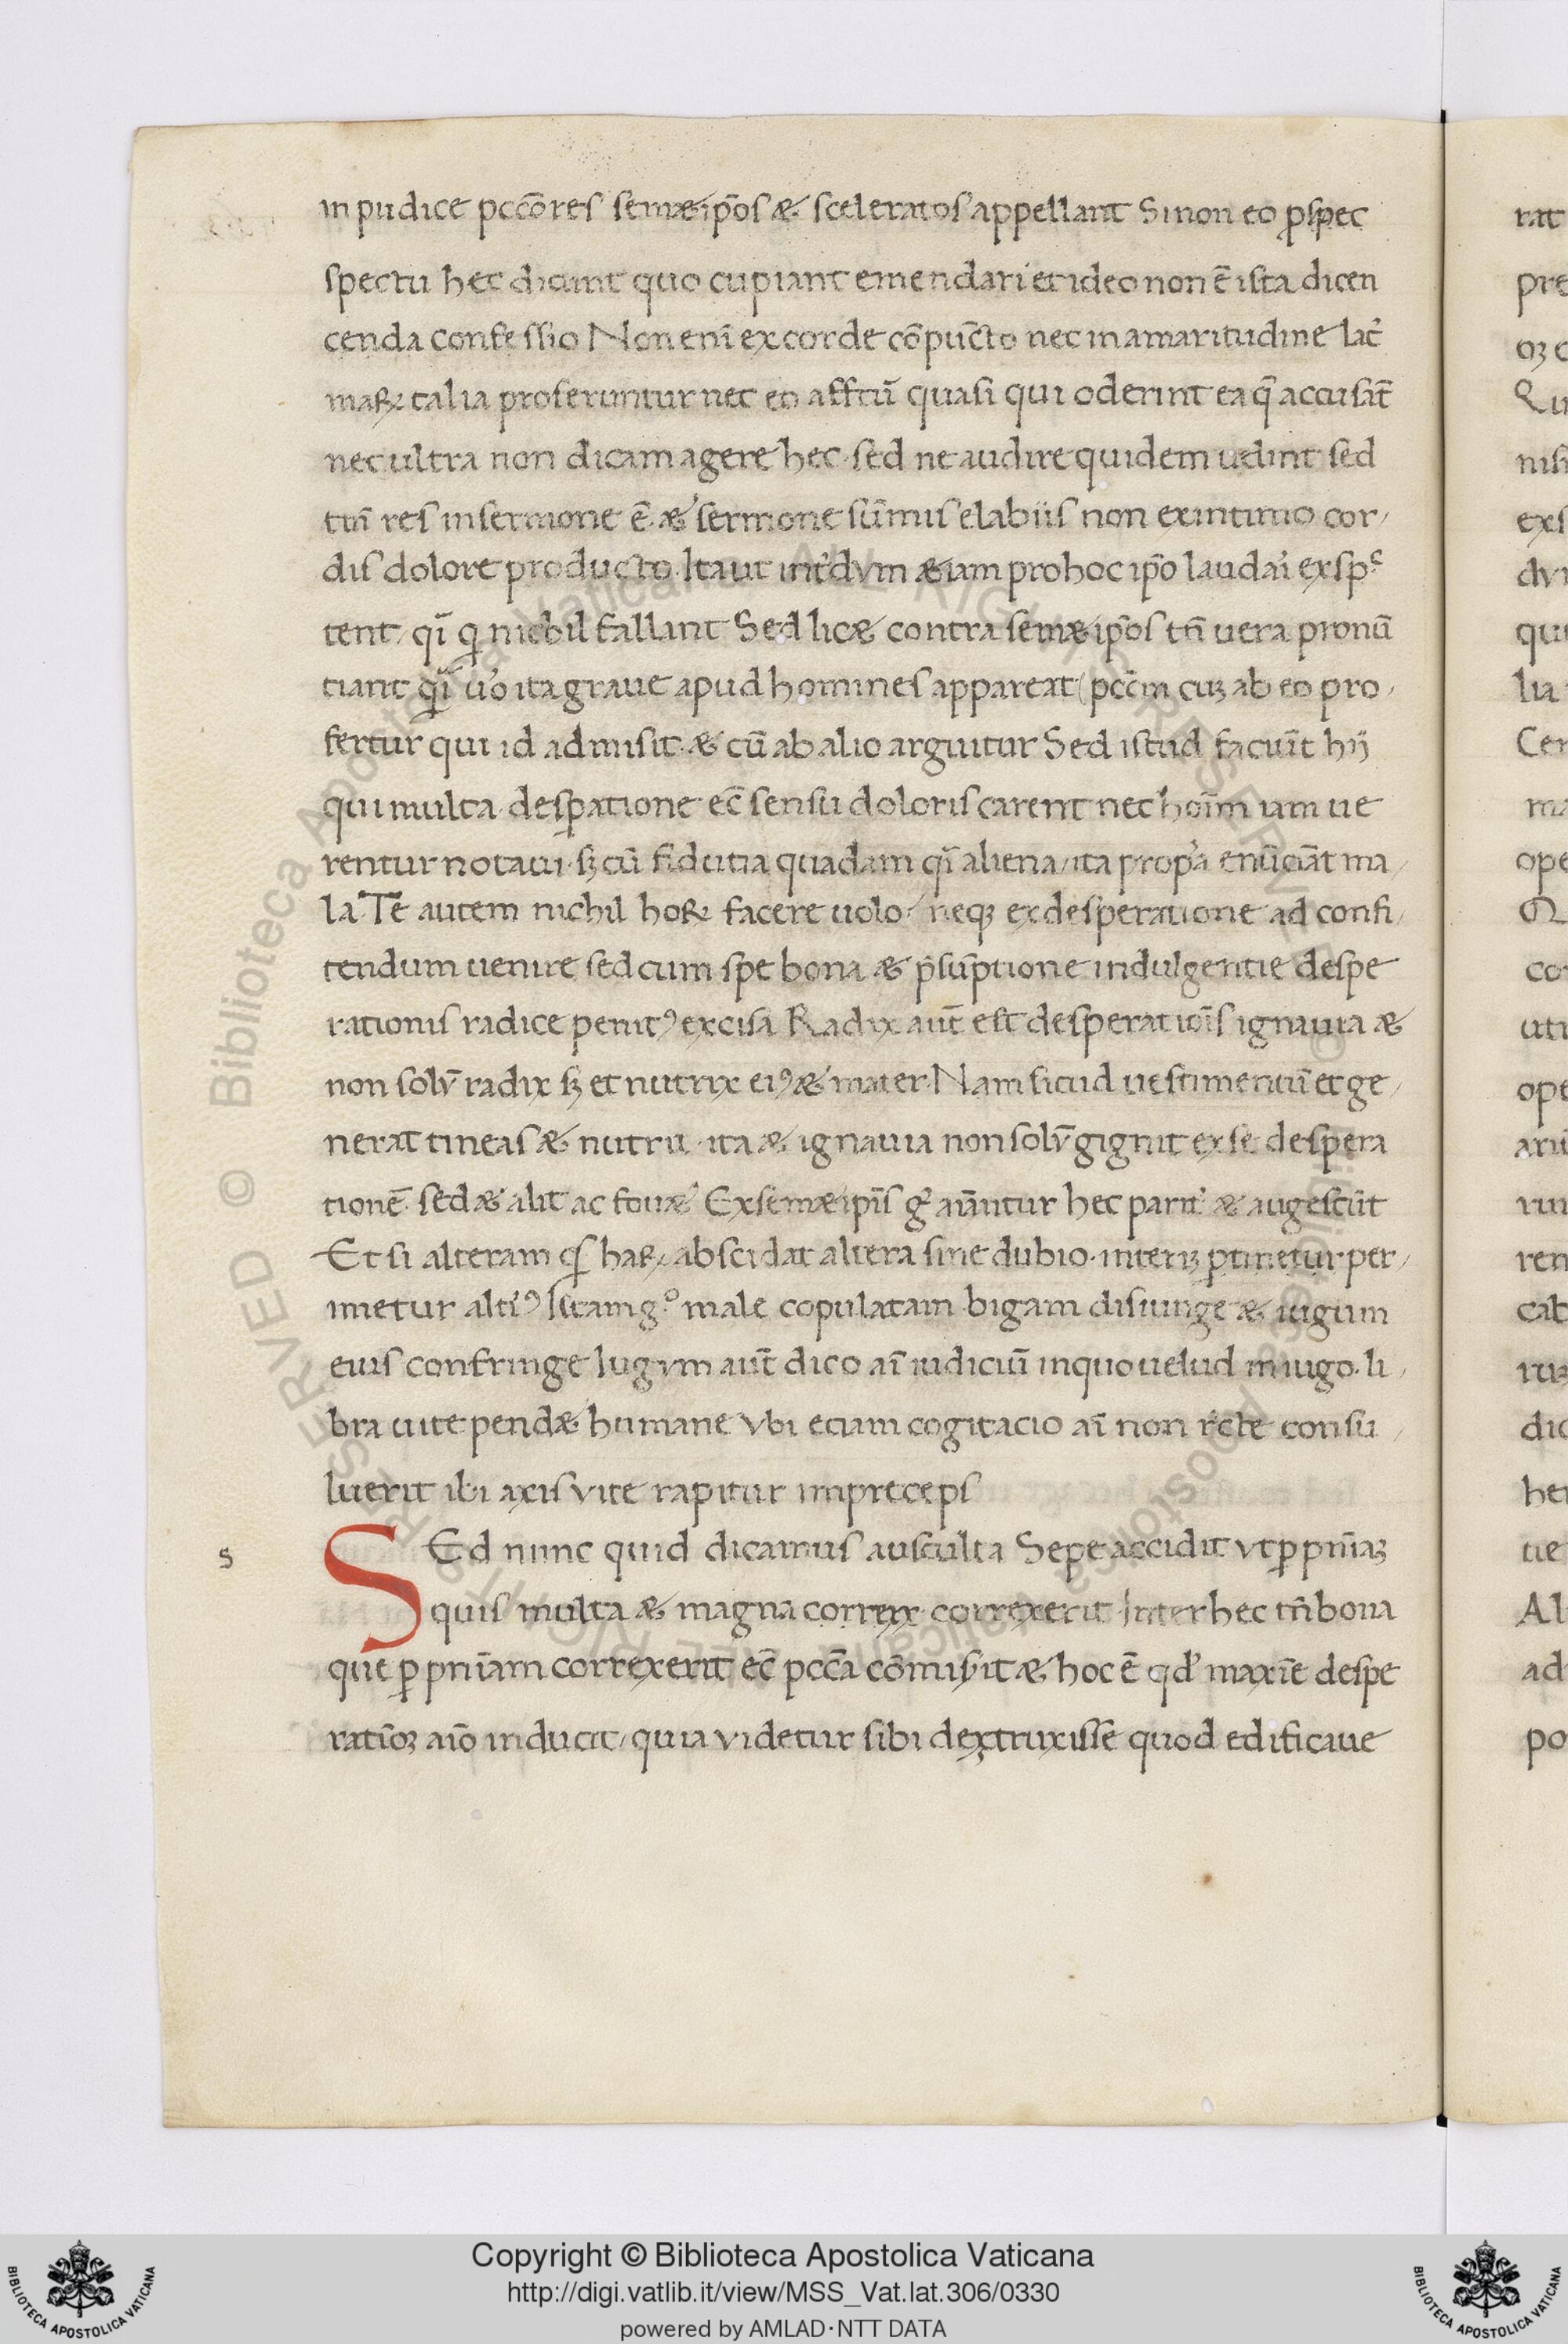 in pudice pccōres semæipōs æ sceleratos appellant Sinon eo ꝓspec
spectu hec dicunt quo cupiant emendari et ideo non ē ista dicen
cenda confessio Non enī ex corde cōpūcto nec in amaritudine lac̉
maꝝ talia proferuntur nec eo affctū quasi qui oderint ea q̄ accusāt
nec ultra non dicam agere hec· sed ne audire quidem uelint sed
res in sermone ē æ sermone sūmis elabiis non exintimo cor⸝
dis dolore producto· Itaut int̉dvm æiam prohoc ipo laudari exspc
tent⸝ qī nichil fallant Sed licæ contra semæipos tn̄ uera pronū
tiant qī uo ita graue apud homines appareat pccm̄ cuꝫ ab eo pro⸝
fertur qui id admisit· æ cū ab alio arguitur Sed istud faciūt hij
qui multa despatione ec̄ sensu doloris carent nec hoīm iam ue
rentur notam· sꝫ cū fidutia quadam qī aliena⸝ ita prop̉a enūciāt ma⸝
la· Te autem nichil hoꝝ facere uolo⸝ neqꝫ ex desperatione ad confi⸝
tendum uenire sed cum spe bona æ p̄sūptione indulgentie despe
rationis radice penitꝰ excisa Radix aut̄ est desperatiōis ignauia æ
non solv̄ radix sꝫ et nutrix eiꝰ æ mater· Nam sicud uestimentū et ge⸝
nerat tineas æ nutrit· ita æ ignauia non solv̄ gignit ex se despera
tionē· sed æ alit ac fouæ Exsemæipīs g̉ hec parit̉ æ augescūt
Et si alteram qs haꝝ abscidat altera sine dubio· ꝑtinetur per⸝
imetur Istam g̊ male copulatam bigam disiunge æ iugum
eius confringe Iugvm aut̄ dico aī iudiciū inquo uelud in iugo· li⸝
bra uite pendæ humane Vbi eciam cogitacio aī non rc̄te consu⸝
luerit ibi axis vite rapitur impreceps
s
SEd nunc quid dicamus ausculta Sepe accidit vt ꝑ pn̄iaꝫ
quis multa æ magna correx correxerit Inter hec tn̄ bona
que ꝑ pn̄iam correxerit ec̄ pcc̄a cōmisit æ hoc ē qd̉ maxīe despe
ratiōꝫ aīo inducit⸝ quia videtur sibi dextruxisse quod edificaue
rat
pre
oꝫ c
Qu
nisi
exs
dvi
qui
lia
Cer
ma
ope
co
uti
ope
ariū
rui
ren
cab
dic
her
ue
Al
ad
po
Biblioteca Apostolica Vaticana ALL RIGHTS RESERVED ©
Copyright © Biblioteca Apostolica Vaticana
http://digi.vatlib.it/view/MSS_Vat.lat.306/0330
powered by AMLAD·NTT DATA
BIBLIOTECA APOSTOLICA VATICANA
BIBLIOTECA APOSTOLICA VATICANA